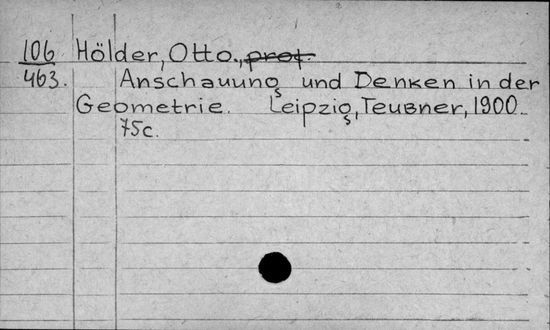 106 Hölder, Otto., prof.
463. Anschauung und Denken in der
Geometrie. Leipzig, Teubner, 1900.
75c.